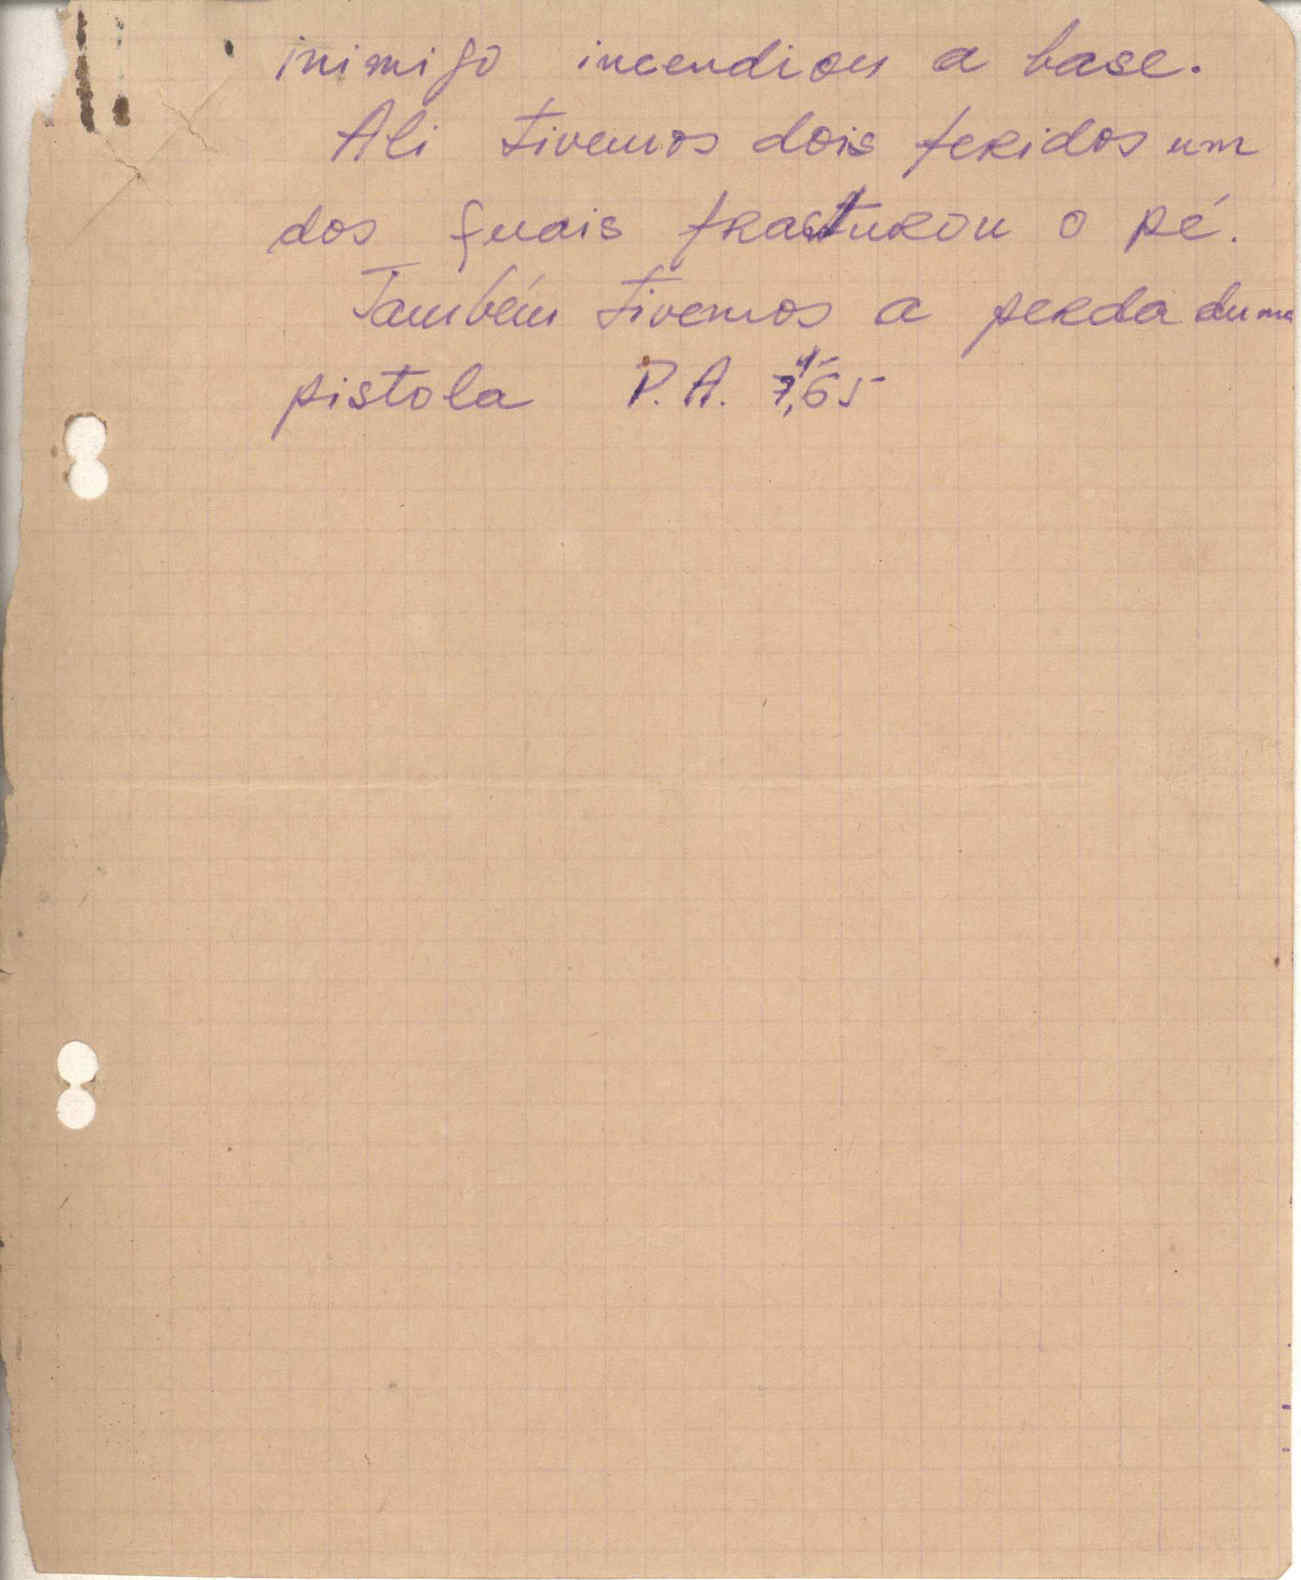 inimigo incendiou a base.
Ali tivemos dois feridos um
dos quais fracturou o pé.
Também tivemos a perda duma
pistola P.A. 7,65